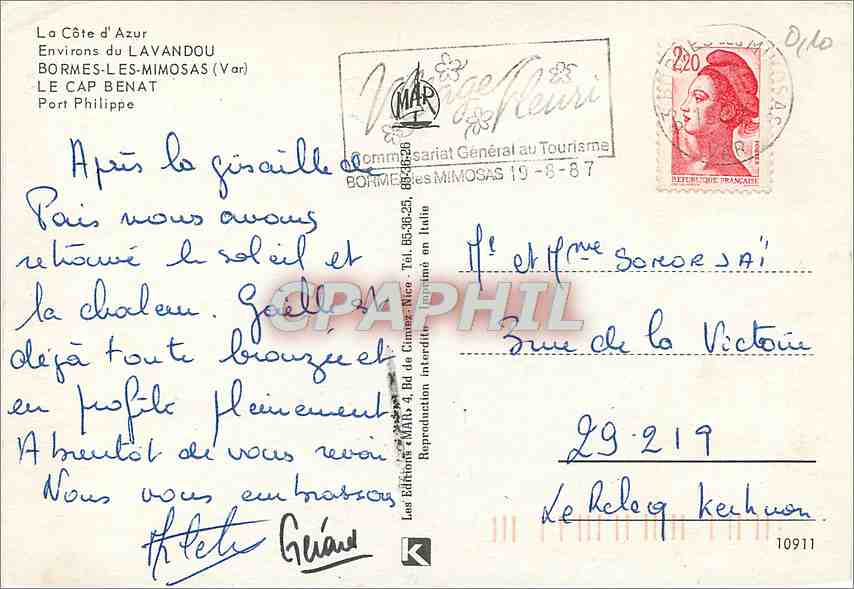 La Côte d'Azur
Environs du LAVANDOU
BORMES-LES-MIMOSAS (Var)
LE CAP BENAT
Port Philippe
Village Fleuri
MAR
Commissariat Général au Tourisme
BORMES les MIMOSAS 19-8-87
2,20
REPUBLIQUE FRANÇAISE
0,10
Après la grisaille de
Paris nous avons
retrouvé le soleil et
la chaleur. Gaëlle est
déjà toute bronzée et
en profite pleinement.
A bientôt de vous revoir
Nous vous embrassons
Arlette Gérard
Les Editions «MAR» 4, Bd de Cimiez - Nice - Tél. 85-36-25, 85-36-26
Reproduction interdite - Imprimé en Italie
K
CPAPHIL
Mr et Mme SOMORJAÏ
3 rue de la Victoire
29.219
Le Relecq Kerhuon
10911